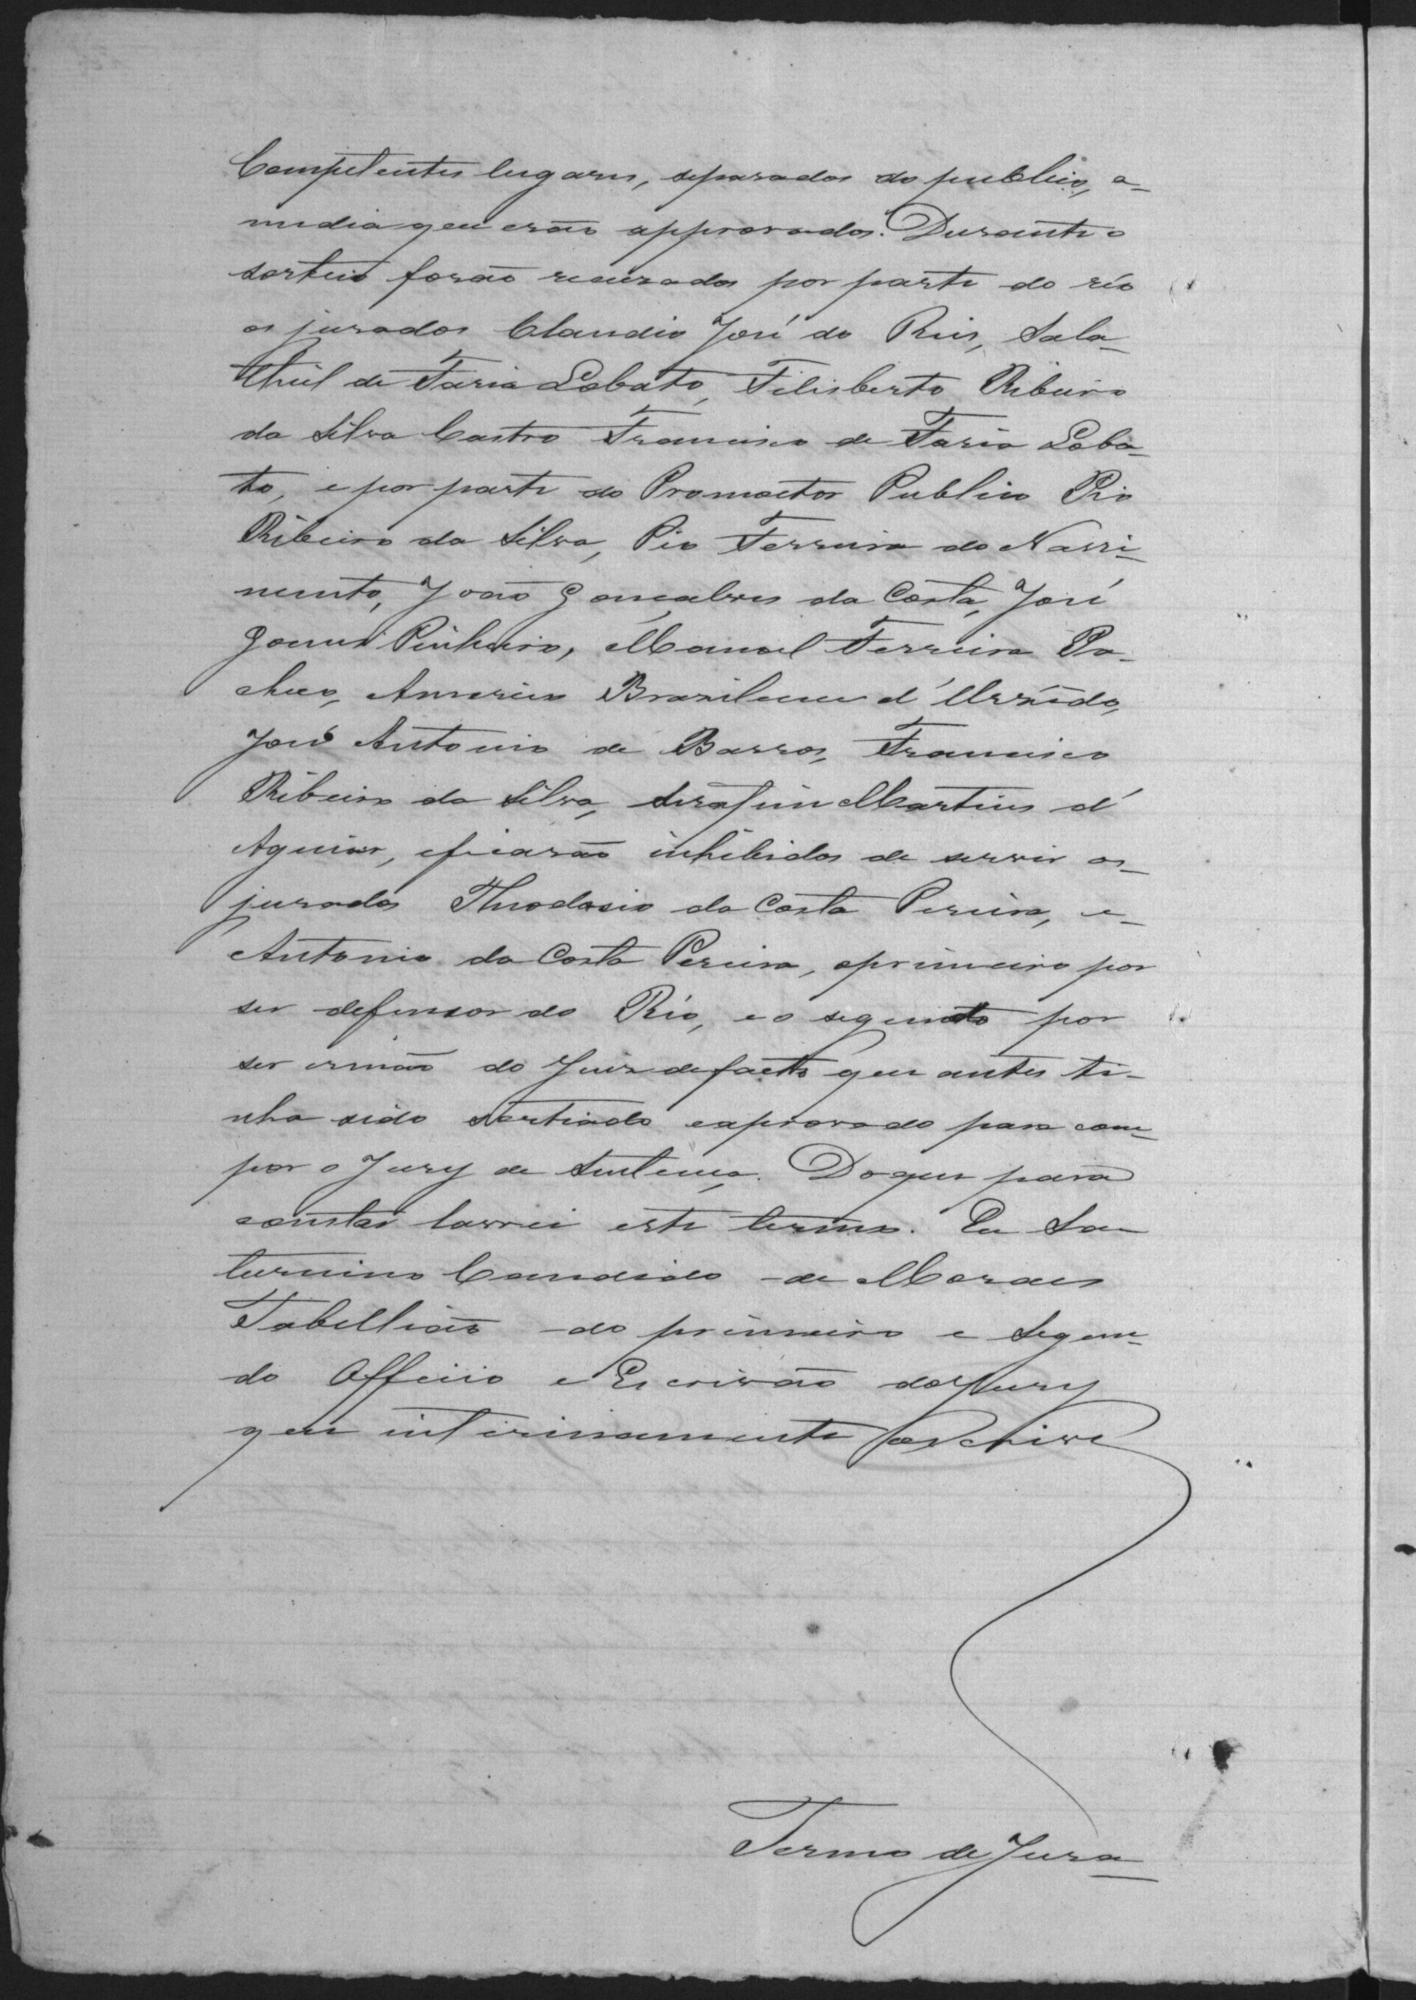 Competentes lugares, separados do publico, a-
medida que erão approvados. Durante o
sorteio forão recuzados por parte do réo
os jurados Claudio José do Reis, Sala-
thiel de Faria Lobato, Filisberto Ribeiro
da Silva Castro Francisco de Faria Loba-
to, e por parte do Promoctor Publico Pio
Ribeiro da Silva, Pio Ferreira do Nassi-
mento, João Gonçalves da Costa, José
Gomes Pinheiro, Manoel Ferreira Pa-
checo, Americo Brazileiro d'
José Antonio de Barros, Francisco
Ribeiro da Silva, Serafim Martins d'
Aguiar, eficarão inhibidos de servir os-
jurados Theodosio da Costa Pereira, e-
Antonio da Costa Pereira, oprimeiro por
ser defensor do Réo, e o segundo por
ser irmão do Juiz defacto que antes ti-
nha sido sortiado eaprovado para com-
por o Jury de Sentença. Do que para
constar lavrei este termo. Eu Sa-
turnino Candido de Moraes
Tabellião do primeiro e Segun-
do Officio e Escrivão do Jury
que interinamente escrivi
Termo de Jura-